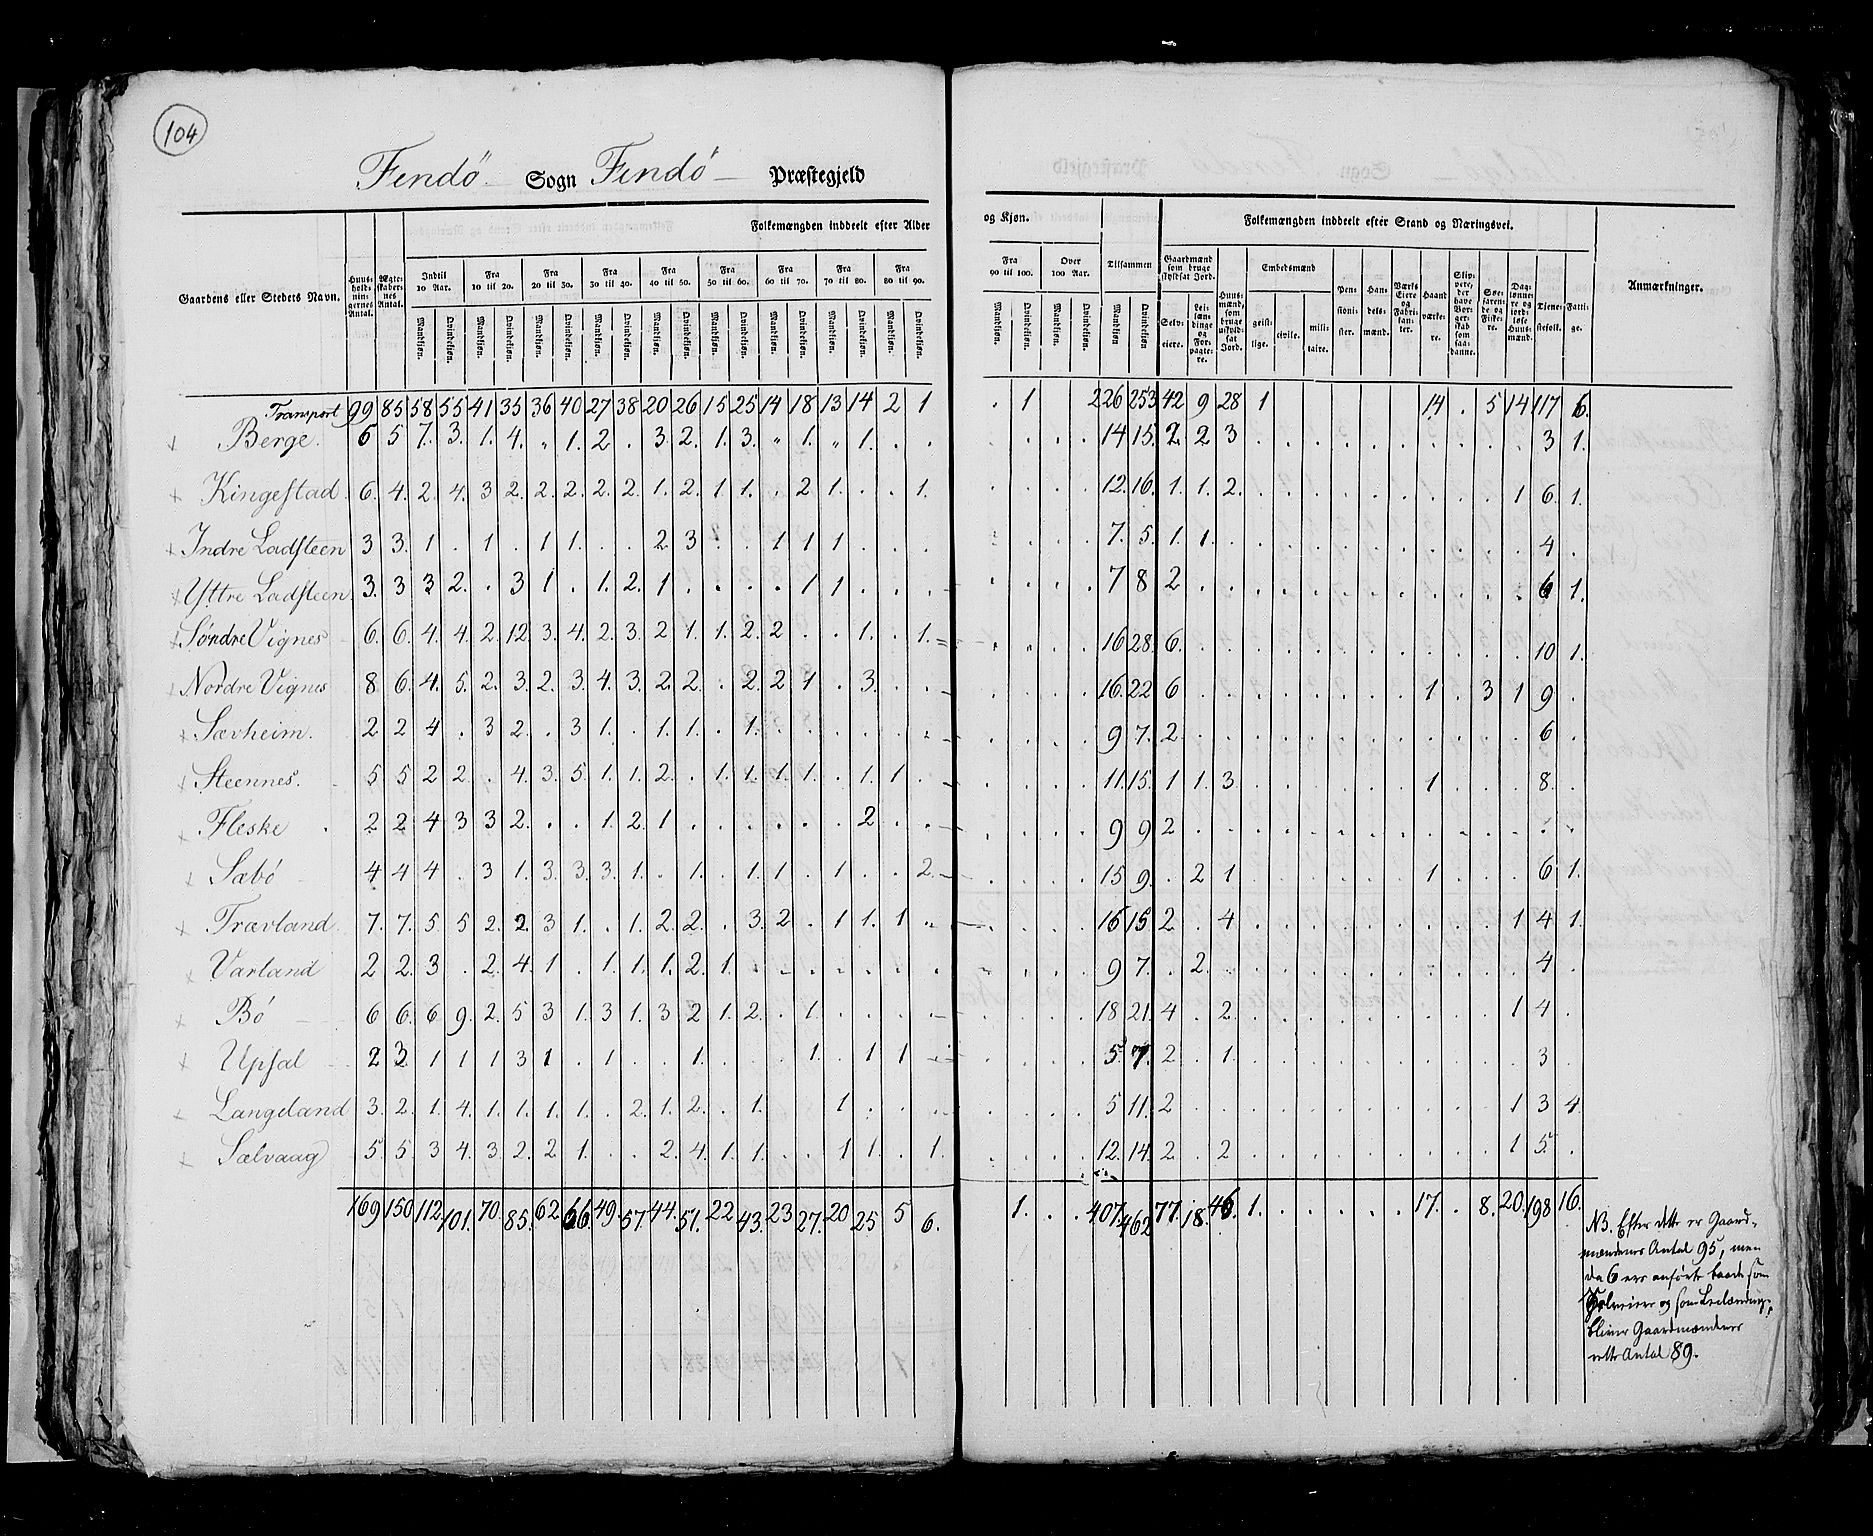 104
Findö Sogn Findö Præstegjeld
Gaardens eller Stedets Navn.
Huusholdningernes Antal.
Ægteskabernes Antal.
Folkemængden inddeelt efter Alder og Kjøn.
Indtil 10 Aar. Fra 10 til 20. Fra 20 til 30. Fra 30 til 40. Fra 40 til 50. Fra 50 til 60. Fra 60 til 70. Fra 70 til 80. Fra 80 til 90. Fra 90 til 100. Over 100 Aar. Tilsammen
Mandkjøn. Qvindekjøn.
Folkemængden inddeelt efter Stand og Næringsvei.
Gaardmænd som bruge skyldsat Jord.
Selveiere. Leilændinge og Forpagtere.
Huusmænd, som bruge uskyldsat Jord.
Embedsmænd
geistlige. civile. militaire.
Pensionister. Handelsmænd. Værks Eiere og Fabrikanter. Haandværkere.
Søefarende og Fiskere. Daglønnere og jordløse Huusmænd. Tjenestefolk. Fattige.
Anmærkninger.
Transport 99 85 58 55 41 35 36 40 27 38 20 26 15 25 14 18 13 14 2 1 . 1 . . 226 253 42 9 28 1 14 . 5 14 117 6.
Berge. 6 5 7. 3. 1. 4. " 1. 2 . 3. 2. 1. 3. " 1. " 1. . . . . . . 14 15. 2. 2 3 3 1.
Kingestad. 6. 4. 2. 4. 3 2. 2. 2. 2. 2. 1. 2. 1. 1. . 2 1. . . 1. 12. 16. 1. 1. 2. 1 6. 1.
Indre Ladsteen 3 3. 1 . 1 . 1 1. . . 2 3 . . 1 1 1 . . . 7. 5. 1. 1. 4 .
Yttre Ladsteen. 3. 3 3 2. . 3 1 . 1. 2. 1 . . . . 1 1 . . . 7 8 2 6 1.
Søndre Vignes 6. 6. 4. 4. 2. 12. 3. 4. 2. 3. 2 1. 1. 2. 2 . . 1. . 1. 16 28. 6. 10 1.
Nordre Vignes 8 6. 4. 5. 2. 3. 2. 3. 4. 3. 2. 2. . 2. 2 1 . 3. . . 16. 22 6 1 . 3 1 9 .
Sævheim. 2 2 4 . 3 2. . 3 1. . 1. 1. . 1. 9 7. 2. 6 .
Steennes. 5 5 2 2. . 4. 3. 5 1. 1. 2. . 1. 1. 1. 1. . 1. 1 . 11. 15. 1 1. 3. 1 8.
Fleske 2 2 4 3 3 2. . . 1. 2. 1 . . . . . . 2 . . 9 9 2 .
Sæbö 4 4 4 . 3 1. 3. 3. 3. 1. . 1. . 1. 1. . 1 . . 2. 15 9. . 2 1 1 6 1.
Trævland. 7. 7. 5 5 2 2. 3 1. . 1. 2 2. . 3. 2. . 1 1. 1 . 16 15. 2. . 4 1 4 1.
Varland 2 2. 3 . 2. 4. 1 . 1. 1. 1. 2. 1. 9 7. . 2. 4 .
Bö 6 6. 6 9. 2. 5 3 1. 3 1. 3 2 1. 2. . 1. 18 21. 4 . 2. 1 4 .
Upsal 2 3. 1 1 1 3 1 . 1 . . 1. . . . 1. . 1 1 . 5 7. 2 . 1. 3
Langeland 3. 2. 1. 4. 1. 1. 1. 1. . 2. 1. 2. . 1. . . 1 . . . 5 11. 2 1 3 4.
Sælvaag 5. 5. 3 4. 3. 2. 2 1. . . 2. 4. 1. 1. . . 1 1. . 1. 12. 14. 2. . 2 1 5. .
169 150 112 101. 70. 85. 62. 66. 49. 57. 44. 51. 22. 43. 23 27. 20 25. 5 6. 1. . . 407. 462 77. 18. 46. 1. 17. . 8. 20. 198 16.
NB. Efter dette er Gaard-
mændenes Antal 95, men
da 6 ere anførte baade som
Selveier og som Leilænding,
bliver Gaardmændenes
rette Antal 89.